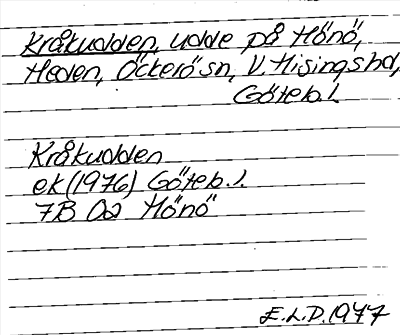 Kråkudden, udde på Hönö,
Heden, Öckerö sn, V. Hisings hd,
Göteb. l.
Kråkudden
ek (1976) Göteb. l.
7B 0a Hönö
E.L.D. 1977